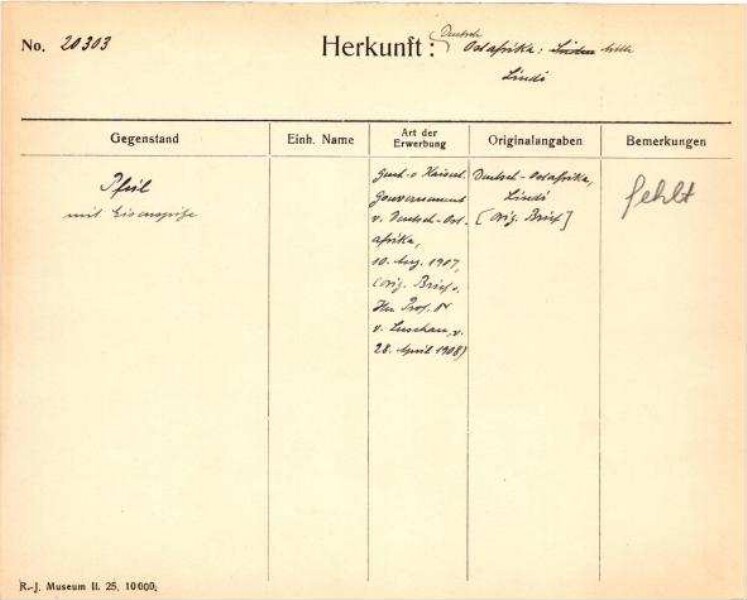 No. 20303
Herkunft: Deutsch Ostafrika:
Lindi
Gegenstand
Einh. Name
Art der Erwerbung
Originalangaben
Bemerkungen
Pfeil
mit Eisenspitze
Gouvernement
v. Deutsch-Ost-
afrika,
10. Aug. 1907,
(orig. Brief v.
Hrn Prof. Dr
v. Luschan, v.
28. April 1908)
Deutsch-Ostafrika,
Lindi
[orig. Brief]
fehlt
R.-J. Museum II. 25. 10000.